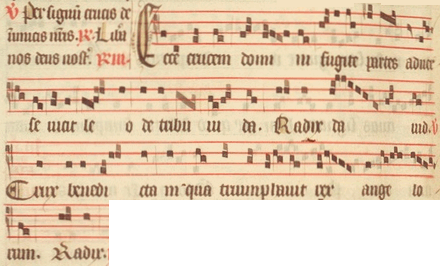 V Per signū crucis de
inimicis nr̄is. R. L
nos deus nost̄. R
Ecce crucem domi ni fugite partes aduer
se uicit le o de tribu iu da. Radix da uid. V
Crux benedi cta in qua triumphauit rex ange lo
rum. Radix.